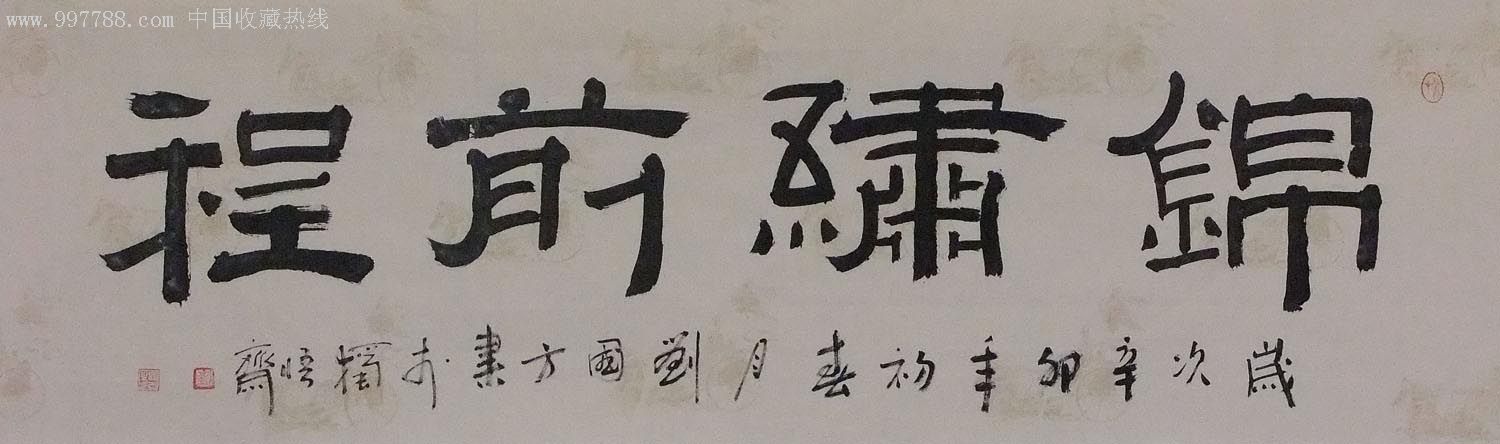 www.997788.com 中国收藏热线
錦繡前程
歲次辛卯年初春月劉國方書於獨悟齋